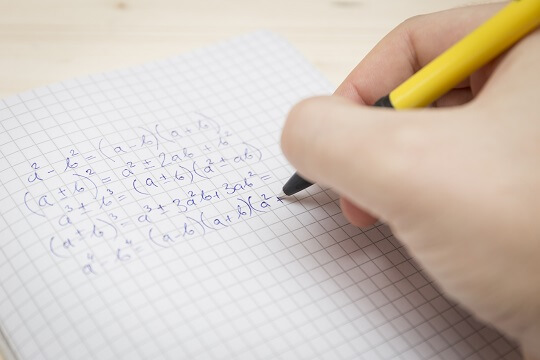 a² - b² = (a-b)(a+b)
(a+b)² = a² + 2ab + b²
a³ ± b³ = (a+b)(a² + ab)
(a±b)³ = a³ ± 3a²b + 3ab² =
a⁴ - b⁴ = (a-b)(a+b)(a² +